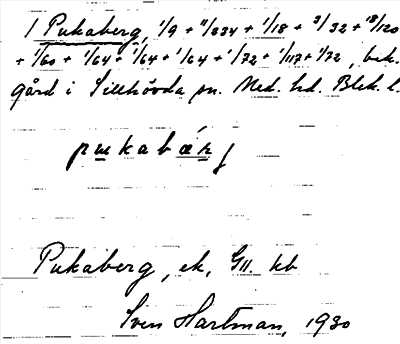 1 Pukaberg, 1/9 + 11/234 + 1/18 + 3/32 + 18/120
+ 1/60 + 1/64 + 1/64 + 1/64 + 1/72 + 1/117 + 1/72, bek.
gård i Sillhövda sn. Med. hd. Blek. l.
pukabærj
Pukaberg, ek, GII. kb
Sven Hartman, 1930